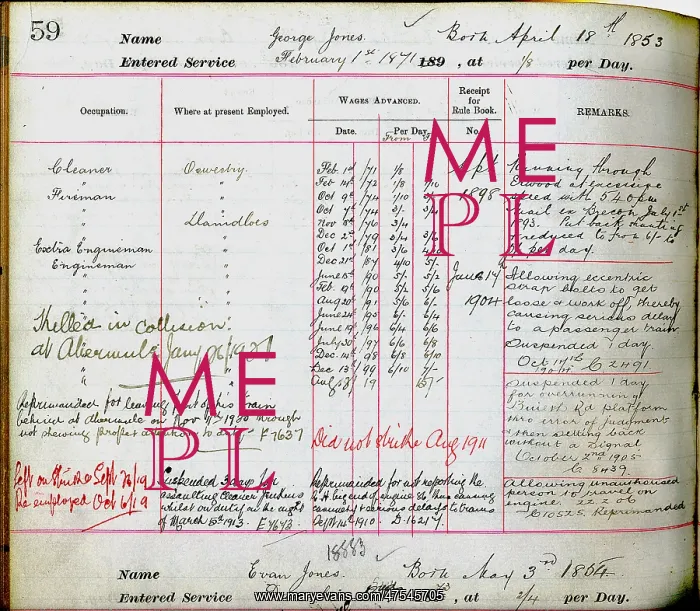 59
Name George Jones. Born April 18th 1853
Entered Service February 1st 1871 189 , at 1/8 per Day.
Occupation.
Where at present Employed.
WAGES ADVANCED.
Date.
Per Day.
From
Receipt for Rule Book.
No.
REMARKS.
Cleaner Oswestry Feb 1st /71 1/8
Fireman " Feb 14th /72 1/8
" " Oct 9th /74 1/10
" Llanidloes Oct 7th /74 3/-
" " Nov 8th /76 3/4
" " Dec 2nd /79 3/4 3/6
Extra Engineman " Oct 1st /81
Engineman " Dec 21st /87 4/10 5/-
" " June 5th /90 5/- 5/2
" " Feb. 19th /90 5/2 5/6
" " Aug 20th /91 5/6 6/-
June 24th /90 6/- 6/4
June 19th /96 6/4 6/6
July 30 /97 6/6 6/8
Dec. 14th /98 6/8 6/10
Dec 13th /99 6/10 7/-
Aug 19 15/-
1898
June 14th
1904
Running through
Erwood at excessive
speed with 5.40 pm
mail ex Brecon July 1st
1893. Put back
reduced to from 6/- to
per day.
Allowing eccentric
strap bolts to get
loose & work off, thereby
causing serious delay
to a passenger train.
Suspended 1 day.
Oct 14th 1904 C 2491
Suspended 1 day
for overrunning
Builth Rd platform
thro error of judgment
& then setting back
without a Signal
October 2nd 1905
C 8439.
Allowing unauthorised
person to travel on
engine 22.2.06
C10525. Reprimanded
Killed in collision
at Abermule Jany 26/1921
Reprimanded for leaving part of his train
behind at Abermule on Nov 1920 through
not shewing proper attention to duty - E7637
Did not strike Aug 1911
Left on Strike Sept 26/19
Re employed Oct 6/19
Suspended 3 days for
assaulting Cleaner
whilst on duty on the night
of March 15th 1913. E4643.
Reprimanded for not reporting the
of engine 86 thus causing
serious delays to trains
Sept 14th 1910. D.16217.
18883
Name Evan Jones. Born May 3rd 1864
Entered Service , at 2/4 per Day.
ME
PL
ME
PL
www.maryevans.com/47545705